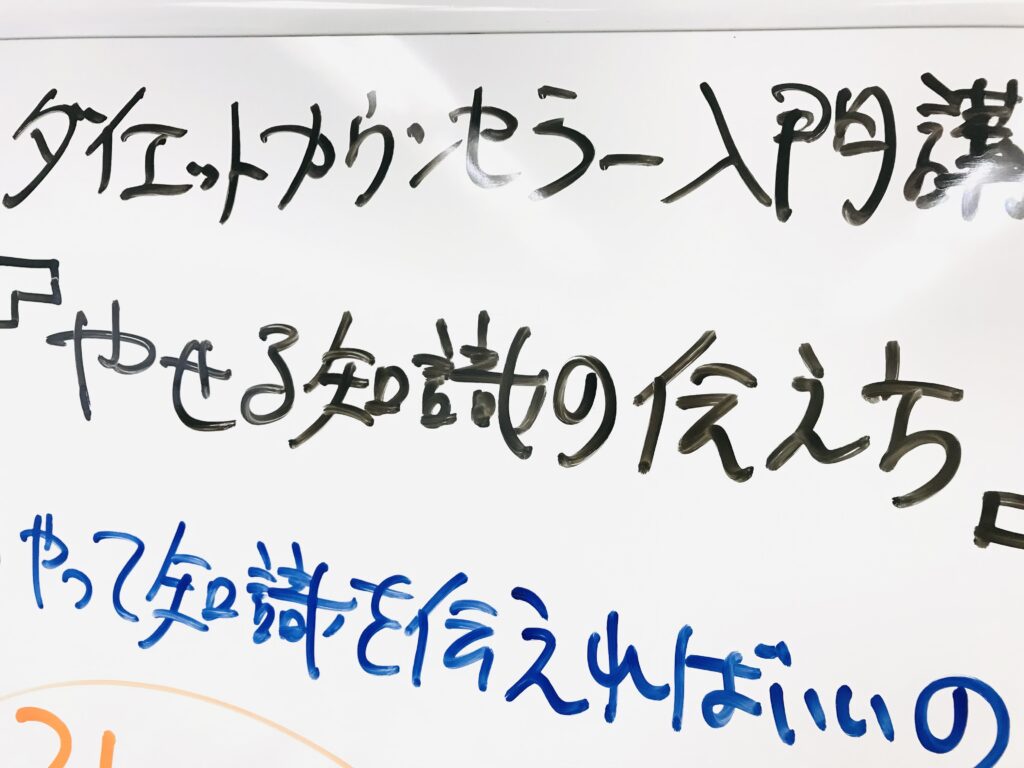 ダイエットカウンセラー入門講
『やせる知識の伝えち』
やって知識を伝えればいいの